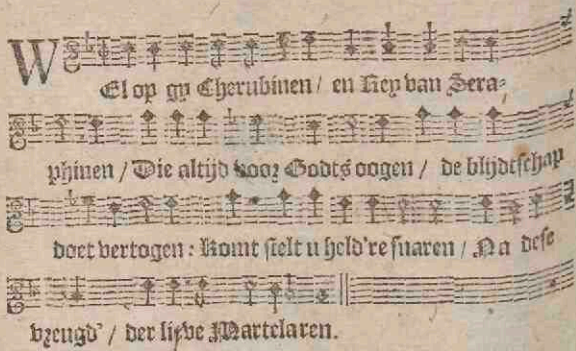 WEl op gy Cherubinen / en Rey van Sera-
phinen / Die altijd voor Godts oogen / de blijdtschap
doet vertogen : Komt stelt u held're snaren / Na dese
vreugd' / der lieve Martelaren.